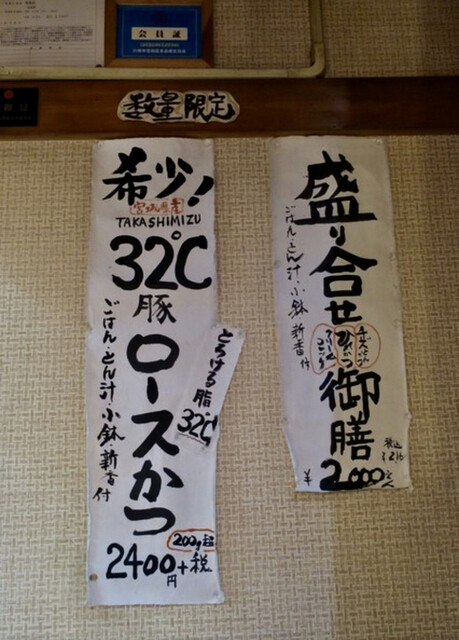 会員証
数量限定
希少!
宮城県産
TAKASHIMIZU
32℃
豚
ロースかつ
とろける脂
32℃
ごはん・とん汁・小鉢・新香付
200g超
2400円+税
盛り合せ御膳
ごはん・とん汁・小鉢・新香付
ひれかつ
税込
¥2,000